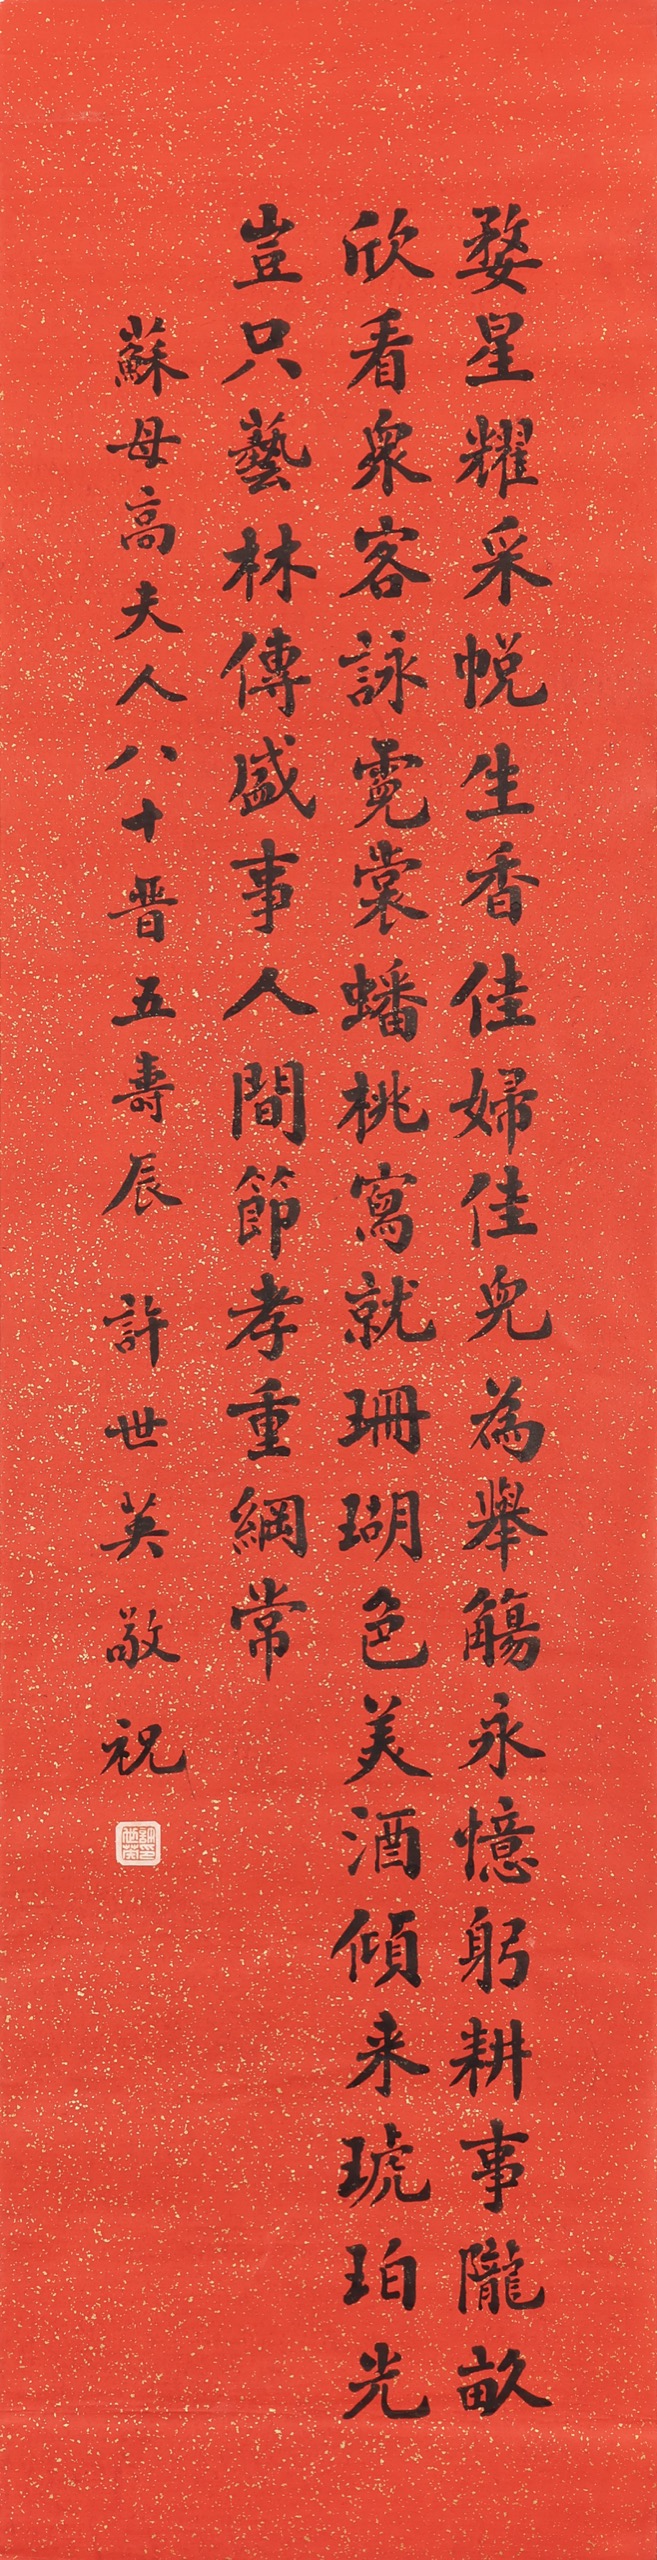 婺星耀采帨生香佳婦佳兒為舉觴永憶躬耕事隴畝
欣看衆客詠霓裳蟠桃寫就珊瑚色美酒傾来琥珀光
豈只藝林傳盛事人間節孝重綱常
蘇母高夫人八十晋五壽辰 許世英敬祝
許世英印